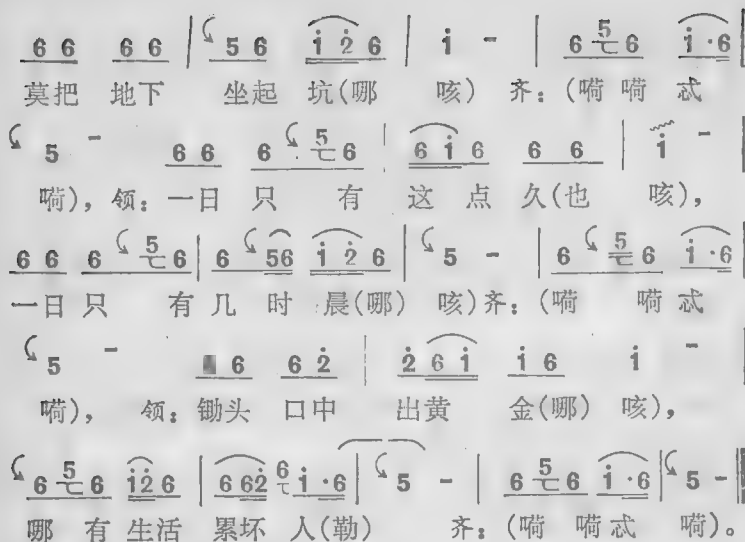 6 6 6 6 | 5 6 i̇ 2̇ 6 | i̇ - | 6 5 6 i̇ ·6
莫把 地下 坐起 坑(哪 咳) 齐:(嗬 嗬 忒
5 - 6 6 6 5 6 | 6 i̇ 6 6 6 | i̇ -
嗬),领:一日 只 有 这 点 久(也 咳),
6 6 6 5 6 | 6 56 i̇ 2̇ 6 | 5 - | 6 5 6 i̇ ·6
一日 只 有 几 时 晨(哪) 咳)齐:(嗬 嗬 忒
5 - 6 6 2̇ | 2̇ 6 i̇ i̇ 6 i̇ -
嗬), 领:锄头 口中 出黄 金(哪) 咳),
6 5 6 i̇2̇ 6 | 6 62̇ 6 i̇ ·6 | 5 - | 6 5 6 i̇ ·6 | 5 -
哪 有 生活 累坏 人(勒) 齐:(嗬 嗬忒 嗬)。